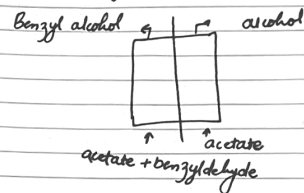 Benzyl alcohol
alcohol
acetate
acetate + benzyldehyde